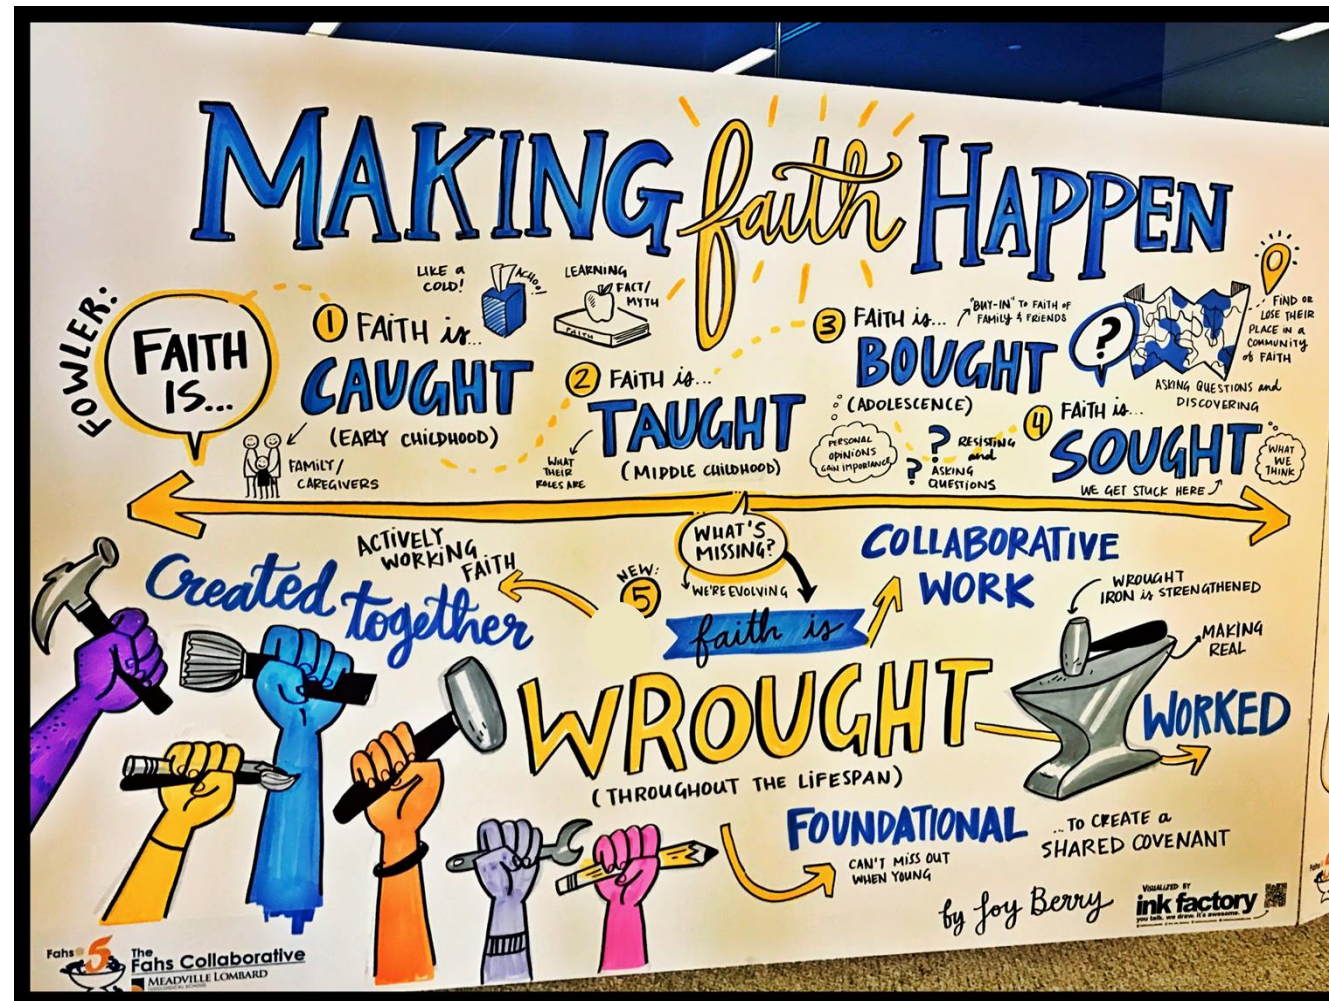 MAKING faith HAPPEN
FOWLER:
FAITH
IS...
1 FAITH is...
CAUGHT
(EARLY CHILDHOOD)
LIKE a
COLD!
ACHOO!
FAMILY/
CAREGIVERS
LEARNING
FACT/
MYTH
FAITH
2 FAITH is...
TAUGHT
(MIDDLE CHILDHOOD)
WHAT
THEIR
ROLES ARE
3 FAITH is...
"BUY-IN" TO FAITH OF
FAMILY & FRIENDS
BOUGHT
(ADOLESCENCE)
PERSONAL
OPINIONS
GAIN IMPORTANCE
?
?
RESISTING
and
ASKING
QUESTIONS
?
FIND OR
LOSE THEIR
PLACE IN a
COMMUNITY
of FAITH
ASKING QUESTIONS and
DISCOVERING
4 FAITH is...
SOUGHT
WE GET STUCK HERE
WHAT
WE
THINK
WHAT'S
MISSING?
WE'RE EVOLVING
NEW:
5
faith is
WROUGHT
(THROUGHOUT THE LIFESPAN)
ACTIVELY
WORKING
FAITH
Created
together
COLLABORATIVE
WORK
WROUGHT
IRON is STRENGTHENED
MAKING
REAL
WORKED
FOUNDATIONAL
CAN'T MISS OUT
WHEN YOUNG
...TO CREATE a
SHARED COVENANT
by Joy Berry
VISUALIZED BY
ink factory
you talk. we draw. it's awesome.
Fahs 5
The
Fahs Collaborative
MEADVILLE LOMBARD
THEOLOGICAL SCHOOL